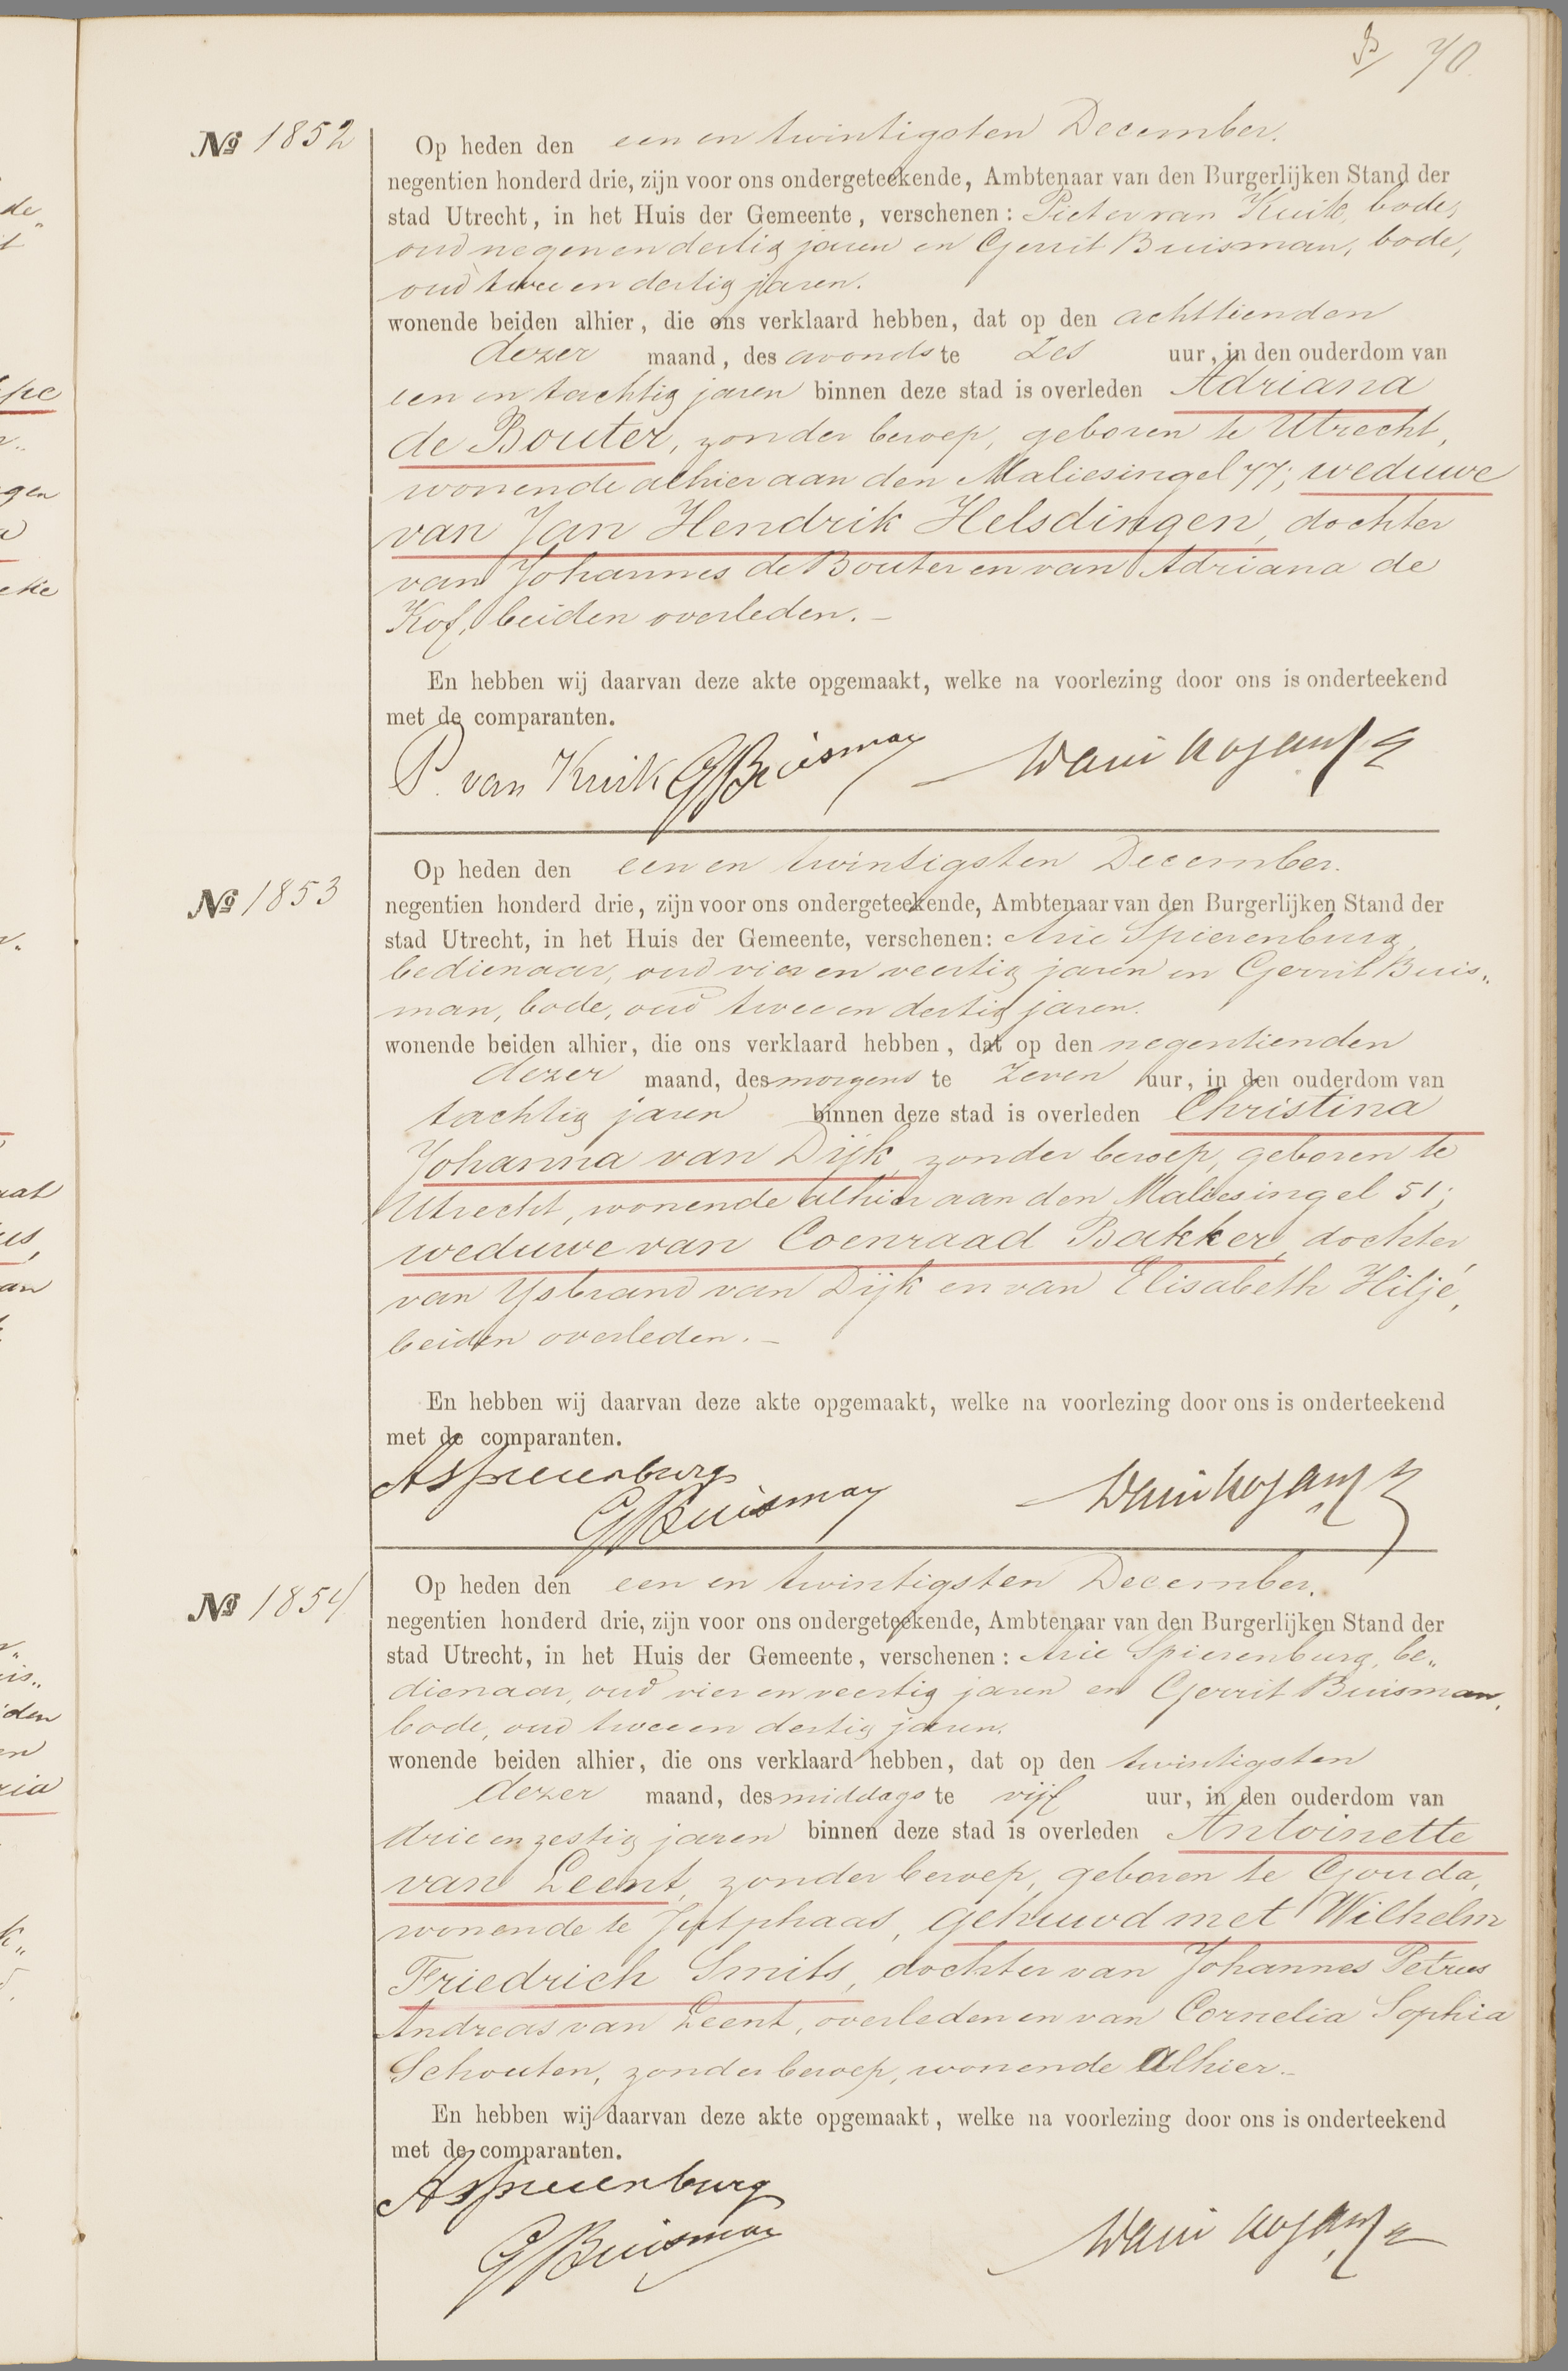 70
№ 1852
Op heden den een en twintigsten December.
negentien honderd drie, zijn voor ons ondergeteekende, Ambtenaar van den Burgerlijken Stand der
stad Utrecht, in het Huis der Gemeente, verschenen: Pieter van Kuik, bode,
oud negenendertig jaren en Gerrit Buisman, bode,
oud twee en dertig jaren.
wonende beiden alhier, die ons verklaard hebben, dat op den achttienden
dezer maand, des avonds te zes uur, in den ouderdom van
een en tachtig jaren binnen deze stad is overleden Adriana
de Bouter, zonder beroep, geboren te Utrecht,
wonende alhier aan den Maliesingel 77; weduwe
van Jan Hendrik Helsdingen, dochter
van Johannes de Bouter en van Adriana de
Kof, beiden overleden. —
En hebben wij daarvan deze akte opgemaakt, welke na voorlezing door ons is onderteekend
met de comparanten.
P. van Kuik GBuisman
№ 1853
Op heden den een en twintigsten December.
negentien honderd drie, zijn voor ons ondergeteekende, Ambtenaar van den Burgerlijken Stand der
stad Utrecht, in het Huis der Gemeente, verschenen: Arie Spierenburg,
bedienaar, oud vier en veertig jaren en Gerrit Buis„
man, bode, oud twee en dertig jaren.
wonende beiden alhier, die ons verklaard hebben, dat op den negentienden
dezer maand, des morgens te zeven uur, in den ouderdom van
tachtig jaren binnen deze stad is overleden Christina
Johanna van Dijk, zonder beroep, geboren te
Utrecht, wonende alhier aan den Maliesingel 51;
weduwe van Coenraad Bakker, dochter
van Ysbrand van Dijk en van Elisabeth Hiljé,
beiden overleden. —
En hebben wij daarvan deze akte opgemaakt, welke na voorlezing door ons is onderteekend
met de comparanten.
ASpierenburg
GBuisman
№ 1854
Op heden den een en twintigsten December.
negentien honderd drie, zijn voor ons ondergeteekende, Ambtenaar van den Burgerlijken Stand der
stad Utrecht, in het Huis der Gemeente, verschenen: Arie Spierenburg, be„
dienaar, oud vier en veertig jaren en Gerrit Buisman,
bode, oud twee en dertig jaren.
wonende beiden alhier, die ons verklaard hebben, dat op den twintigsten
dezer maand, des middags te vijf uur, in den ouderdom van
drie en zestig jaren binnen deze stad is overleden Antoinette
van Leent, zonder beroep, geboren te Gouda,
wonende te Jutphaas, gehuwd met Wilhelm
Friedrich Smits, dochter van Johannes Petrus
Andreas van Leent, overleden en van Cornelia Sophia
Schouten, zonder beroep, wonende alhier. —
En hebben wij daarvan deze akte opgemaakt, welke na voorlezing door ons is onderteekend
met de comparanten.
ASpierenburg
GBuisman